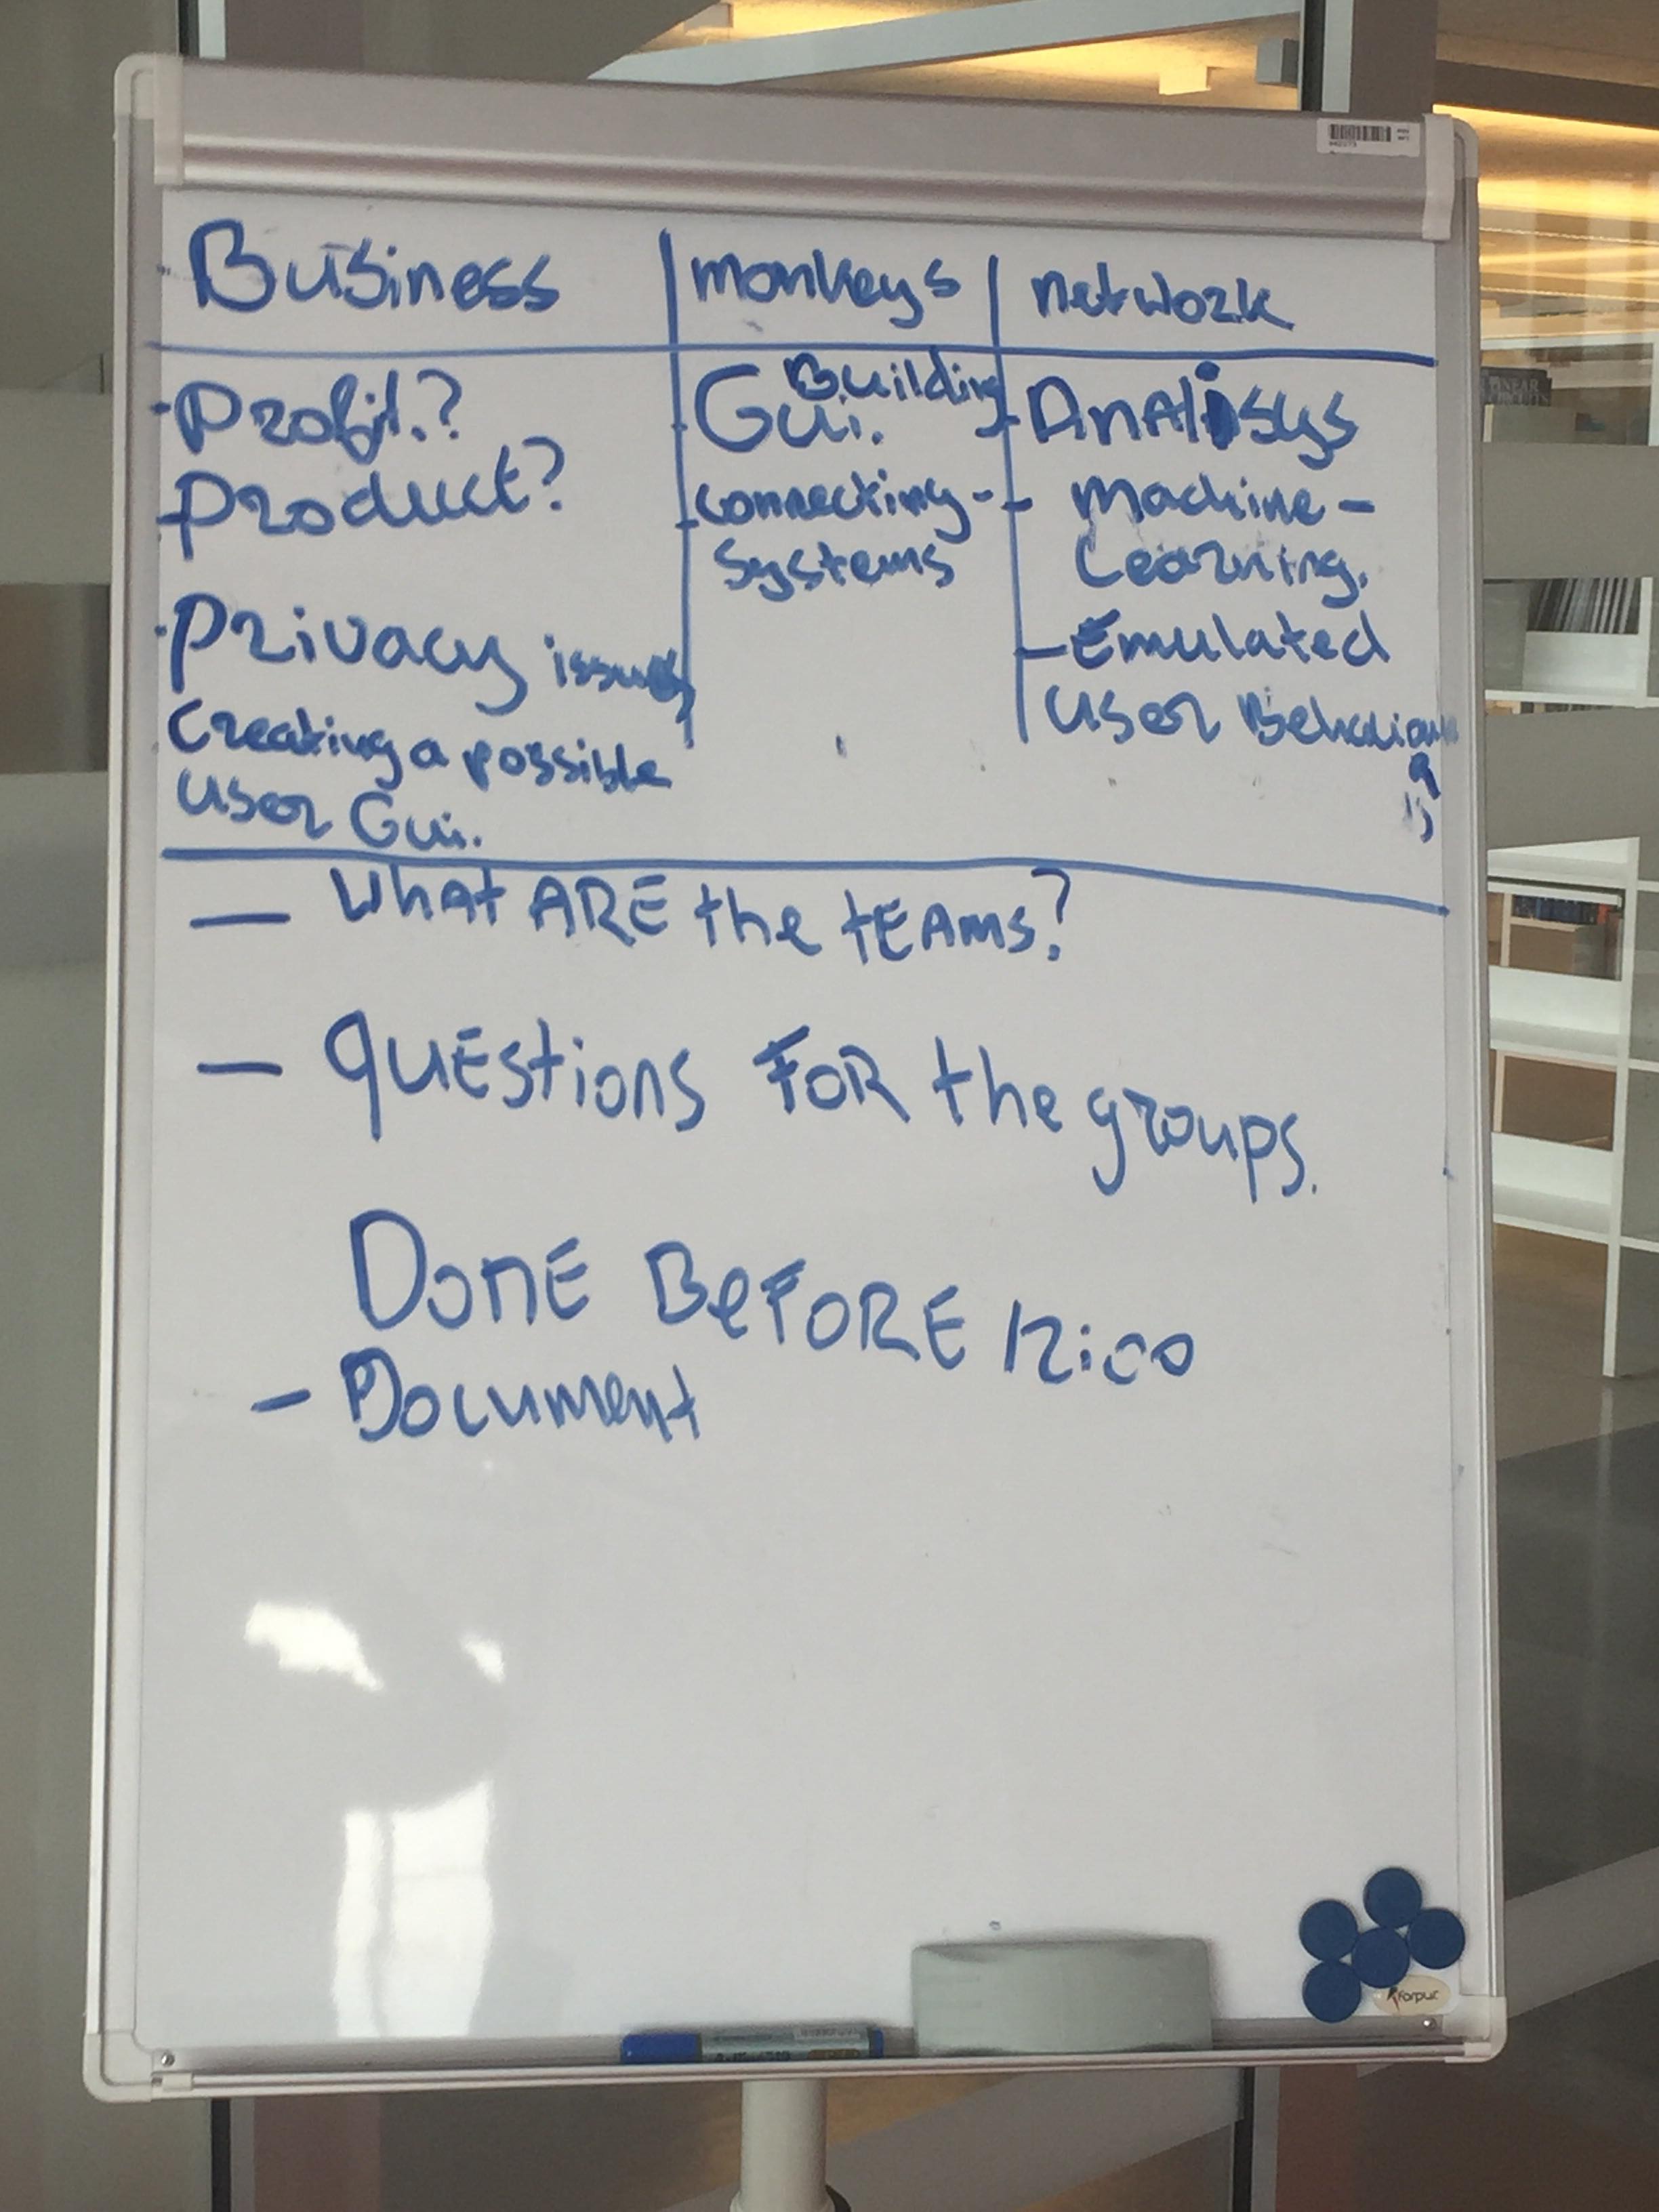 Business
monkeys
network
- Profit.?
- Product?
- Privacy issues
Creating a possible
User Gui.
- Gui. Building
- connecting-
systems
- Analisys
- Machine-
Learning.
- Emulated
User Behaviour
— What ARE the tEAMs?
— QUEStions FOR the groups.
DonE BeFORE 12:00
- Document
forpus